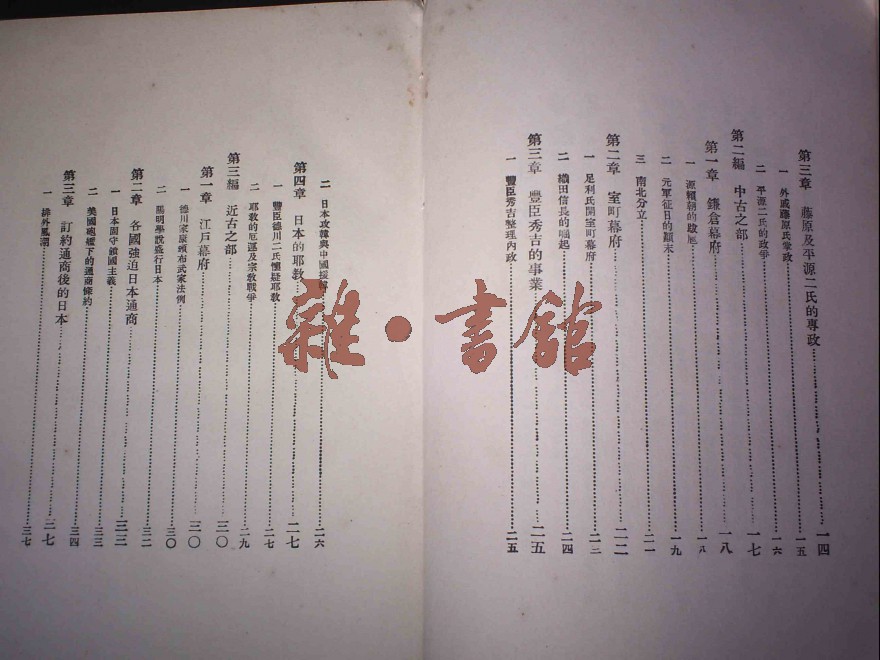 第三章 藤原及平源二氏的專政……一四
一 外戚藤原氏秉政……一五
二 平源二氏的政爭……一六
第二編 中古之部……一七
第一章 鎌倉幕府……一八
一 源賴朝的……一八
二 元軍征日的顚末……一九
三 南北分立……二一
第二章 室町幕府……二二
一 足利氏開室町幕府……二二
二 織田信長的崛起……二四
第三章 豐臣秀吉的事業……二五
一 豐臣秀吉整理內政……二五
二 日本攻韓與中國援韓……二六
第四章 日本的耶敎……二七
一 豐臣德川二氏懷疑耶敎……二七
二 耶敎的厄運及宗敎戰爭……二九
第三編 近古之部……三〇
第一章 江戶幕府……三〇
一 德川家康頒布武家法例……三〇
二 陽明學說盛行日本……三二
第二章 各國強迫日本通商……三三
一 日本固守鎖國主義……三三
二 美國砲艦下的通商條約……三四
第三章 訂約通商後的日本……三七
一 排外風潮……三七
雜·書館